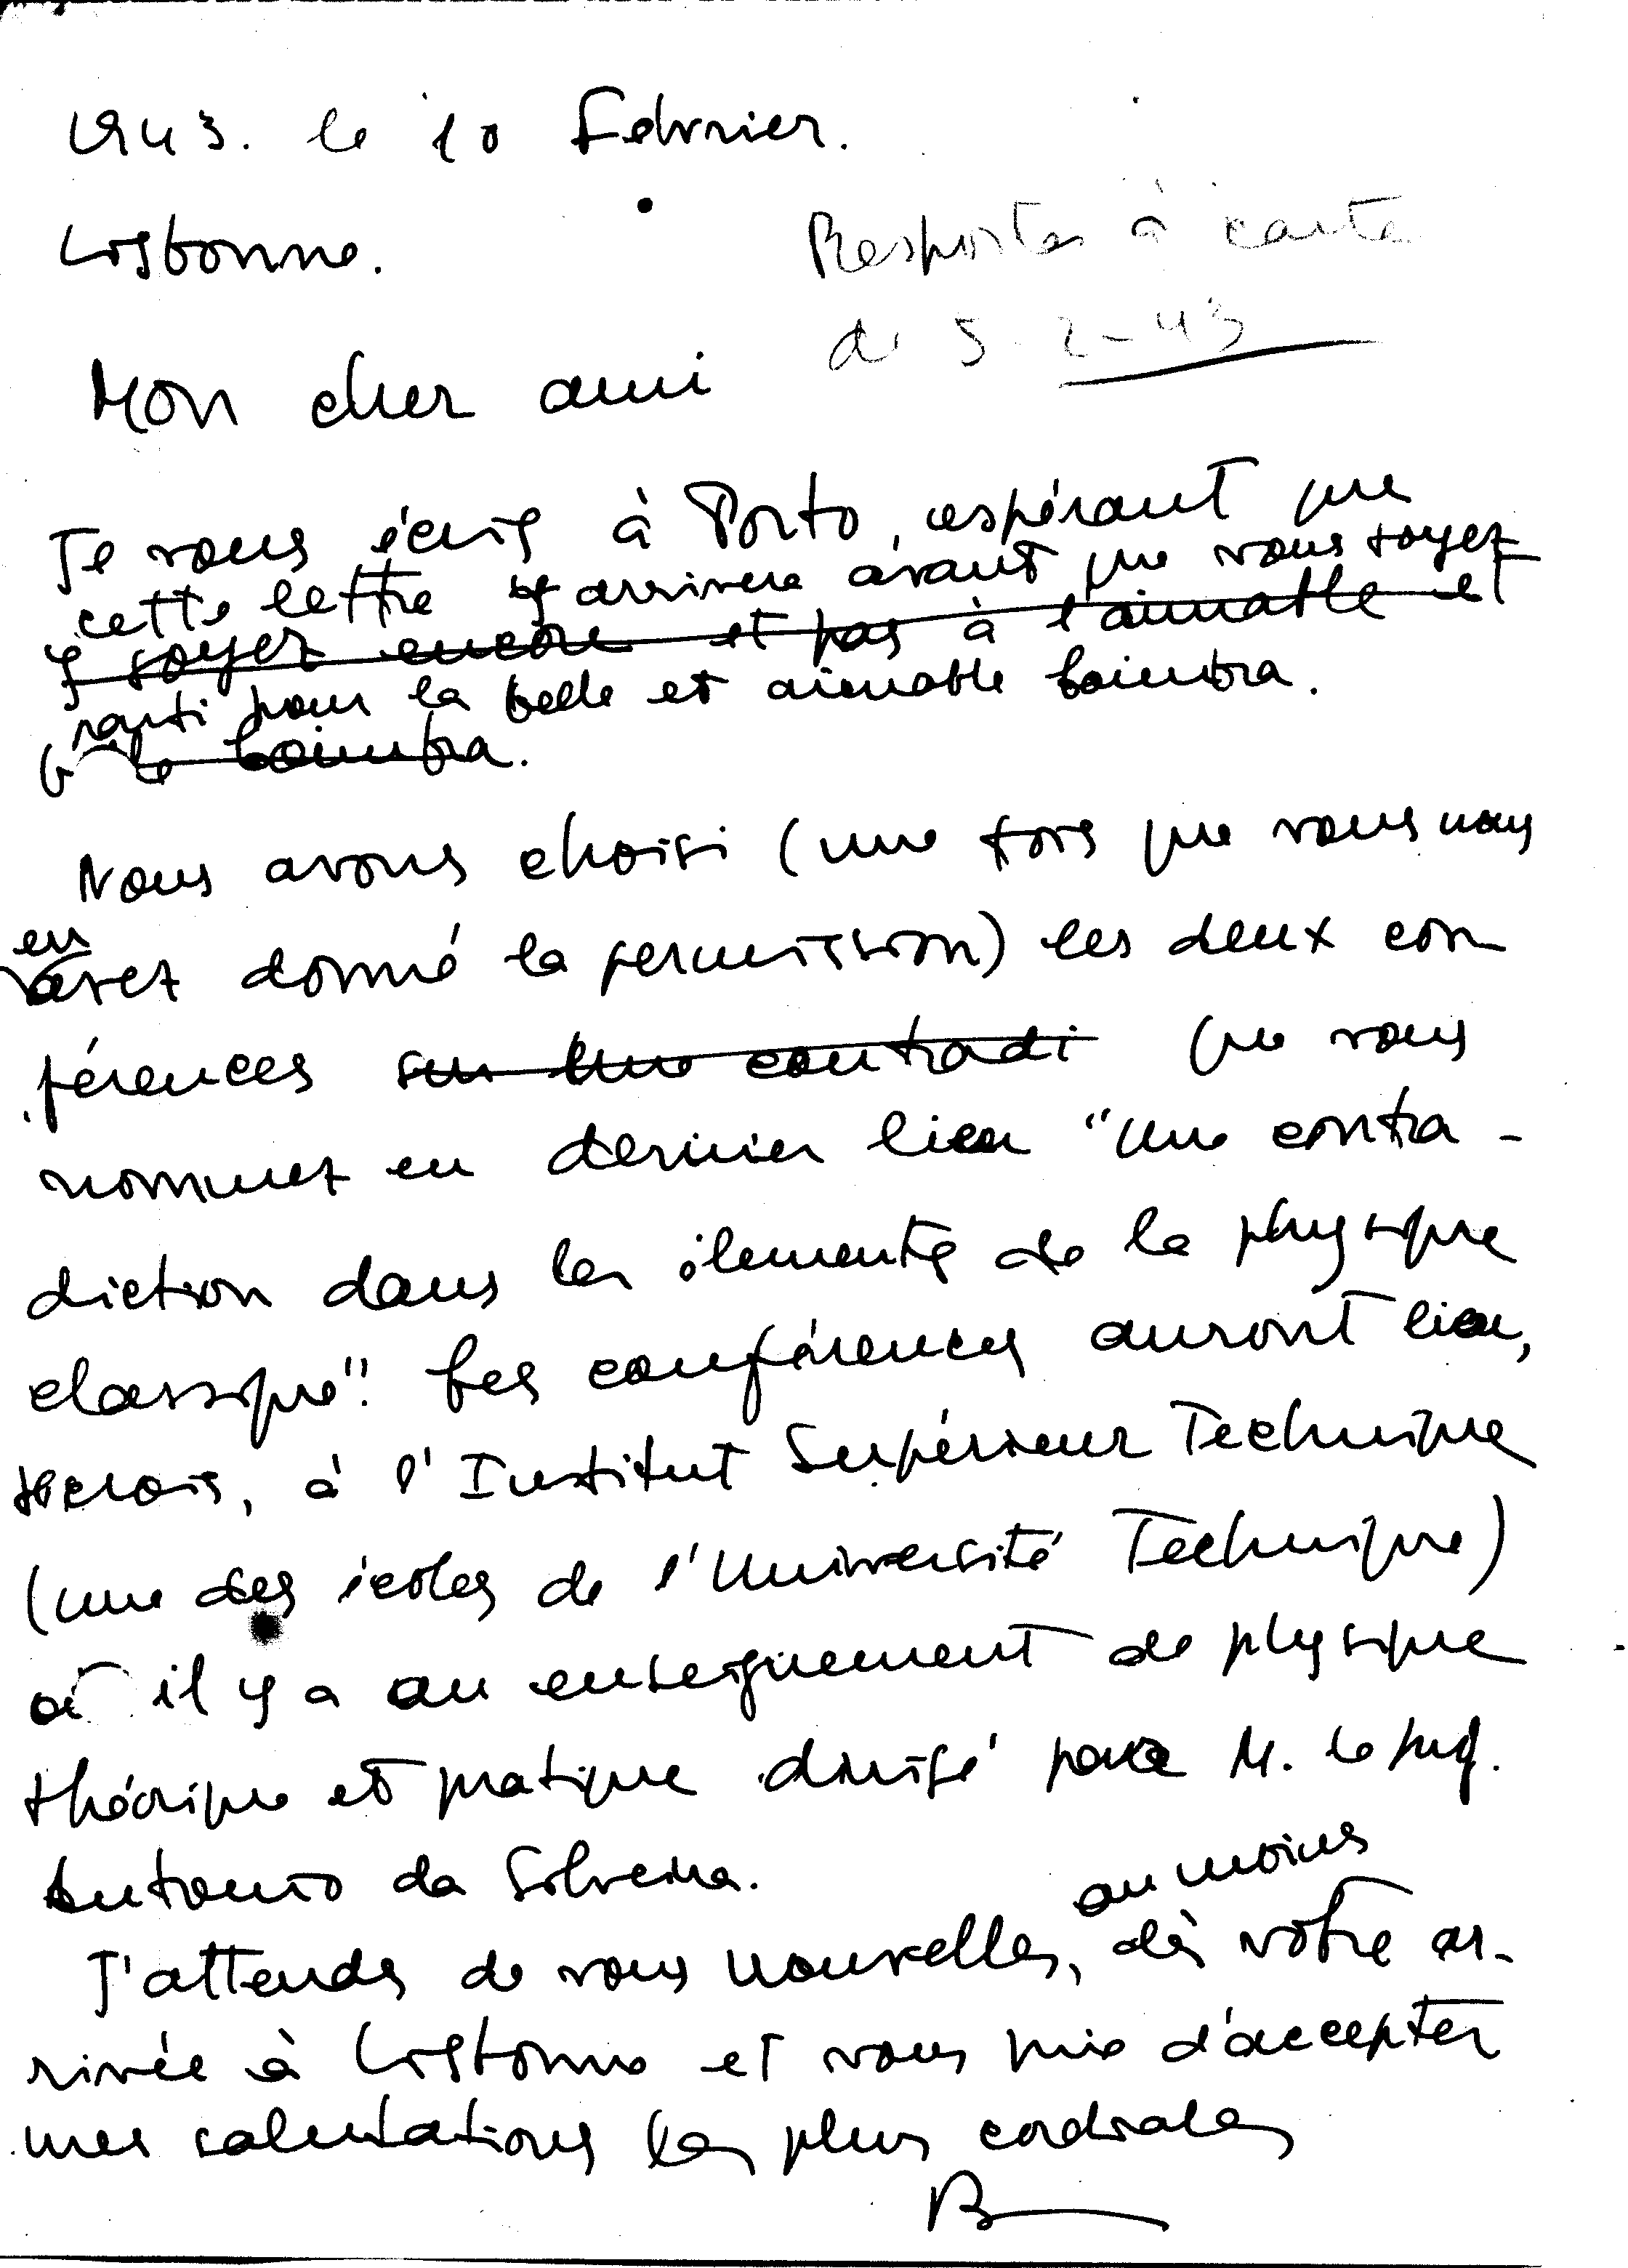 1943. le 10 Février.
Lisbonne.
Resposta à carta
de 5-2-43
Mon cher ami
Je vous écris à Porto, espérant que
cette lettre y arrivera avant que vous soyez
y soyez encore et pas à l'aimable et
parti pour la belle et aimable Coimbra.
Coimbra.
Nous avons choisi (une fois que vous nous
en
avez donné la permission) les deux con
férences sur une contradi que vous
nommez en dernier lieu "Une contra-
diction dans les éléments de la physique
classique". Les conférences auront lieu,
je crois, à l'Institut Supérieur Technique
(une des écoles de l'Université Technique)
où il y a un enseignement de physique
théorique et pratique dirigé par M. le prof.
Antonio da Silveira.
au moins
J'attends de vous nouvelles, dès votre ar-
rivée à Lisbonne et vous prie d'accepter
mes salutations les plus cordiales